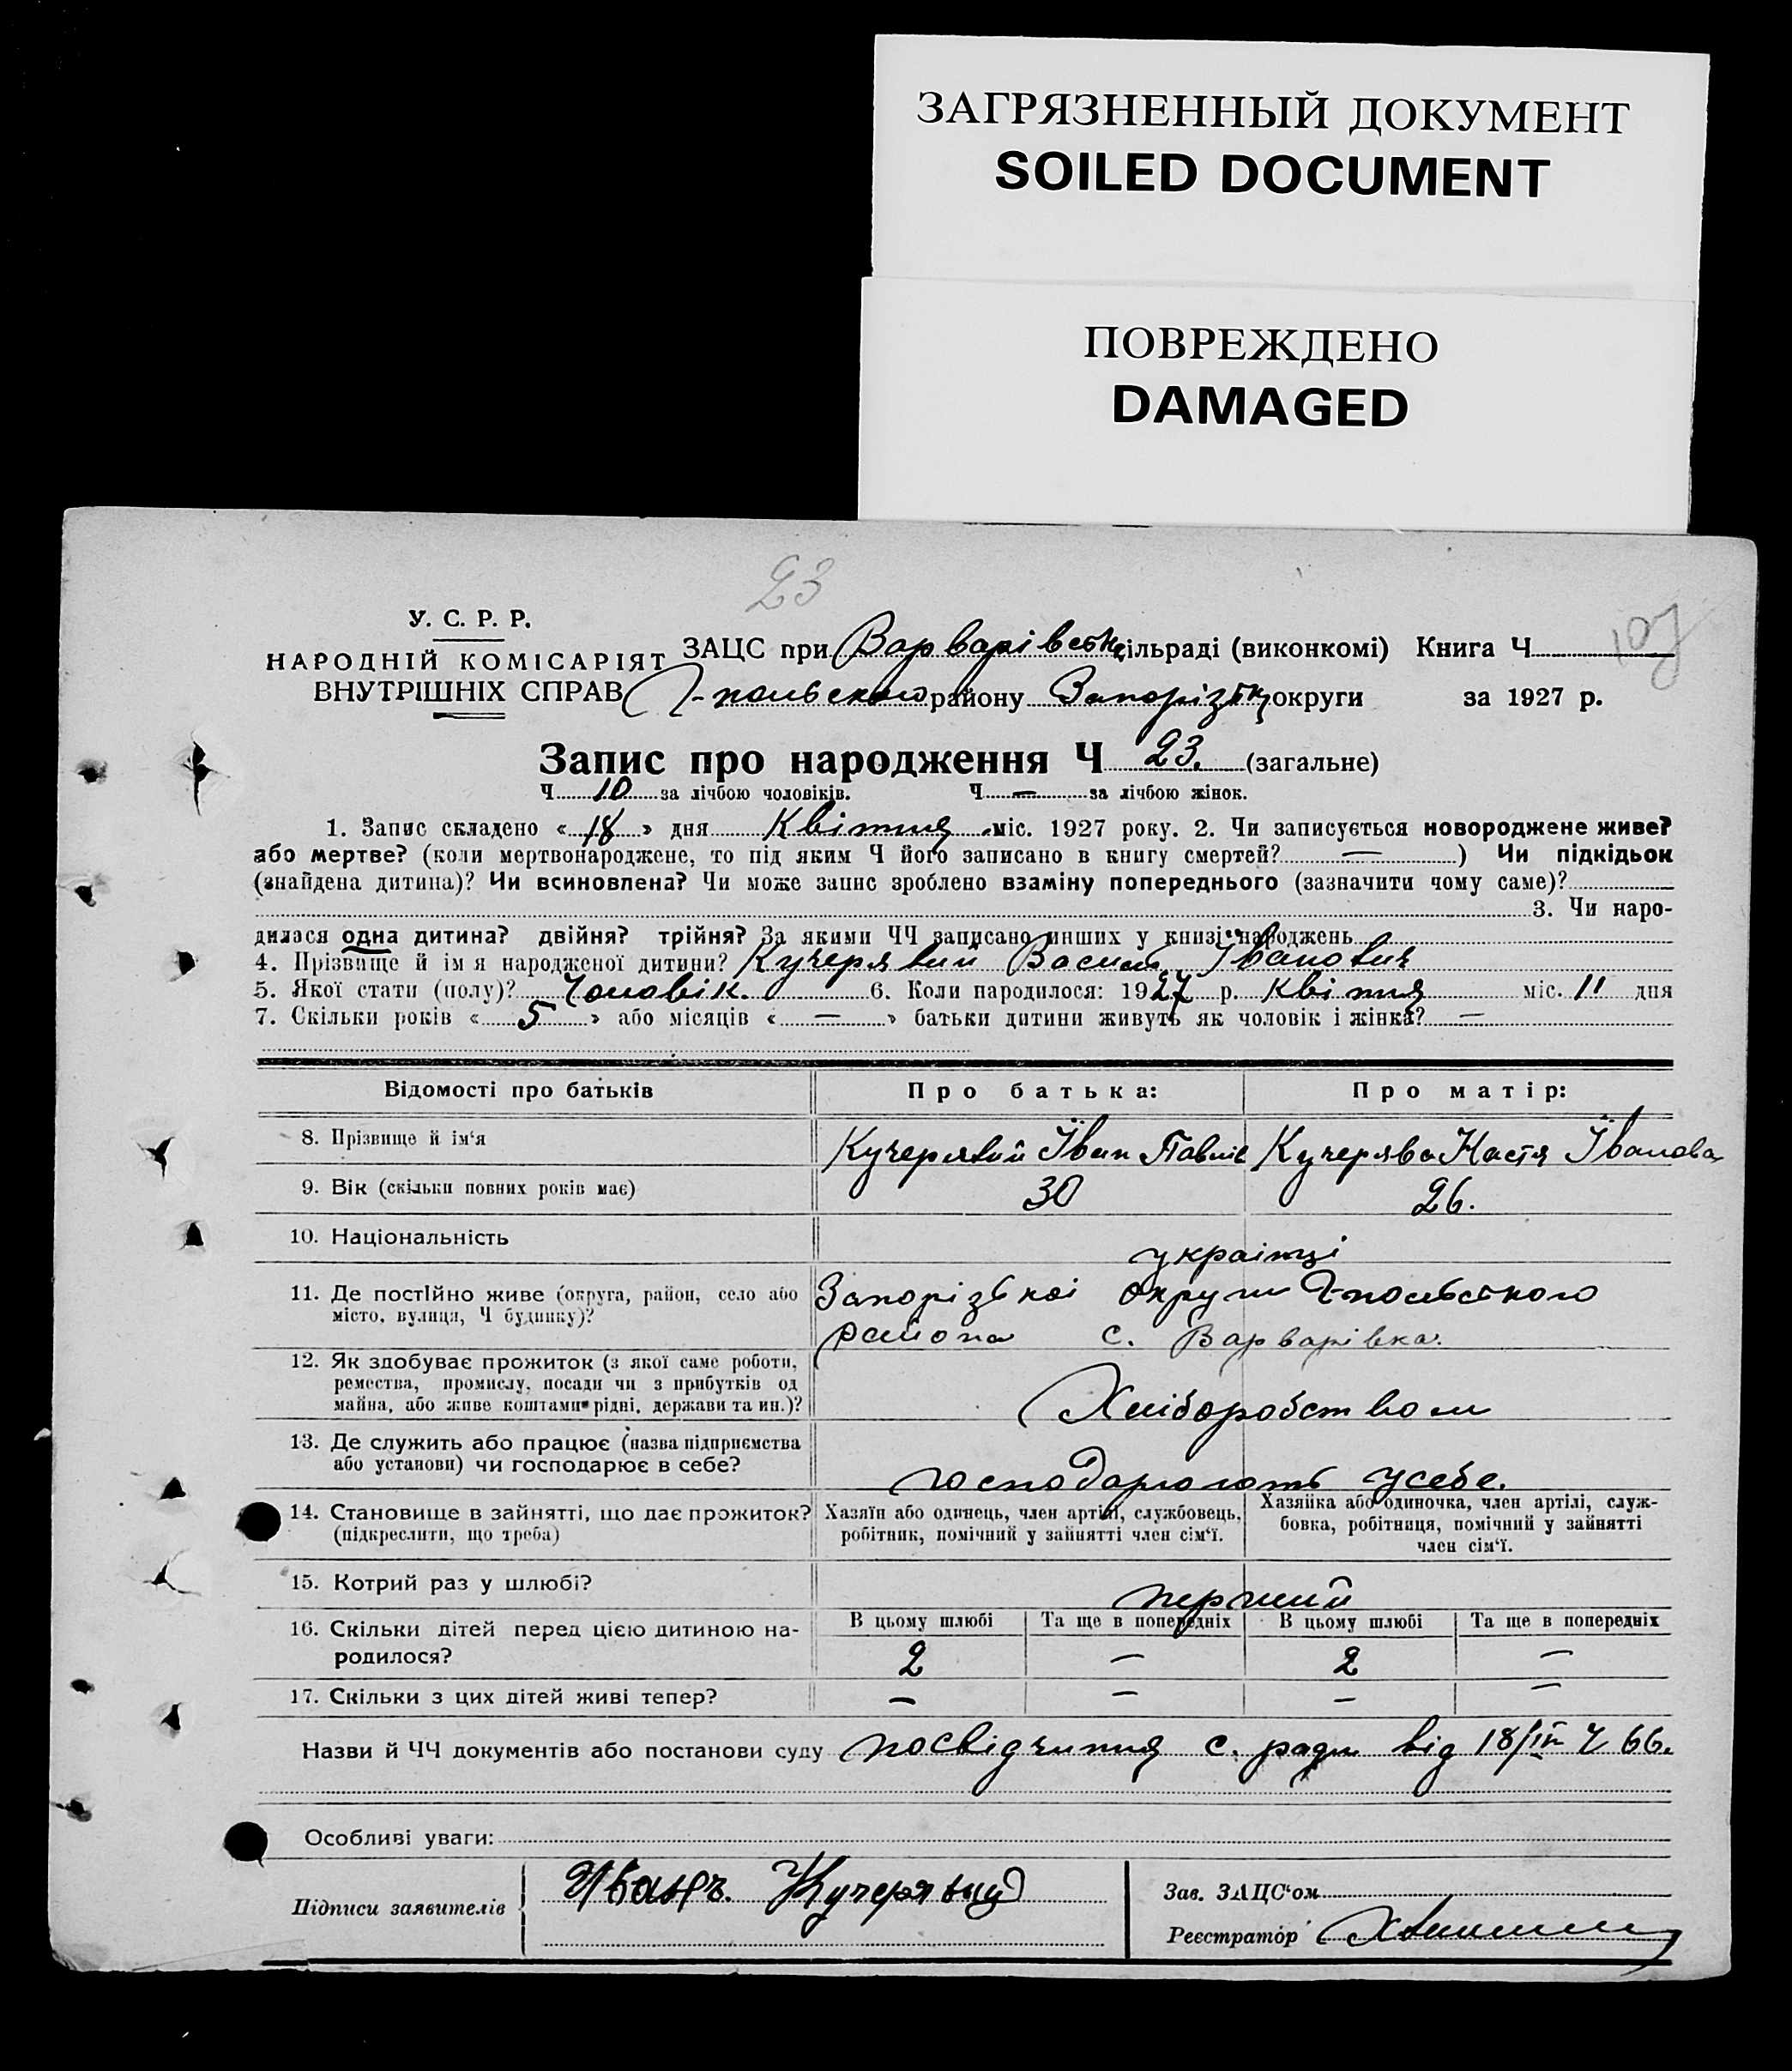 ЗАГРЯЗНЕННЫЙ ДОКУМЕНТ
SOILED DOCUMENT
ПОВРЕЖДЕНО
DAMAGED
23
107
У. С. Р. Р.
НАРОДНІЙ КОМІСАРІЯТ
ВНУТРІШНІХ СПРАВ
ЗАЦС при Варварівськ сільраді (виконкомі) Книга Ч
Г-польского району Запорізьк округи за 1927 р.
Запис про народження Ч 23. (загальне)
Ч 10 за лічбою чоловіків. Ч — за лічбою жінок.
1. Запис складено « 18 » дня Квітня міс. 1927 року. 2. Чи записується новороджене живе?
або мертве? (коли мертвонароджене, то під яким Ч його записано в книгу смертей? — ) Чи підкідьок
(знайдена дитина)? Чи всиновлена? Чи може запис зроблено взаміну попереднього (зазначити чому саме)?
3. Чи наро-
дилася одна дитина? двійня? трійня? За якими ЧЧ записано инших у книзі народжень
4. Прізвище й ім я народженої дитини? Кучерявий Василь Іванович
5. Якої стати (полу)? Чоловік. 6. Коли народилося: 1927 р. Квітня міс. 11 дня
7. Скільки років « 5 » або місяців « — » батьки дитини живуть як чоловік і жінка? —
Відомості про батьків Про батька: Про матір:
8. Прізвище й ім'я Кучерявий Їван Павлів Кучерява Настя Їванова
9. Вік (скільки повних років має) 30 26.
10. Національність українці
11. Де постійно живе (округа, район, село або Запорізької округи Г-польського
місто, вулиця, Ч будинку)? района с. Варварівка.
12. Як здобуває прожиток (з якої саме роботи,
ремества, промислу, посади чи з прибутків од
майна, або живе коштами рідні, держави та ин.)? Хліборобством
13. Де служить або працює (назва підприємства
або установи) чи господарює в себе? господарюють усебе.
14. Становище в зайнятті, що дає прожиток? Хазяїн або одинець, член артілі, службовець, Хазяйка або одиночка, член артілі, служ-
(підкреслити, що треба) робітник, помічний у зайнятті член сім'ї. бовка, робітниця, помічний у зайнятті
член сім'ї.
15. Котрий раз у шлюбі? перший
16. Скільки дітей перед цією дитиною на- В цьому шлюбі Та ще в попередніх В цьому шлюбі Та ще в попередніх
родилося? 2 — 2 —
17. Скільки з цих дітей живі тепер? — — — —
Назви й ЧЧ документів або постанови суду посвідчиння с. ради від 18/IV Ч 66.
Особливі уваги:
Підписи заявителів Иванъ Кучерявый
Зав. ЗАЦС'ом
Реєстратор